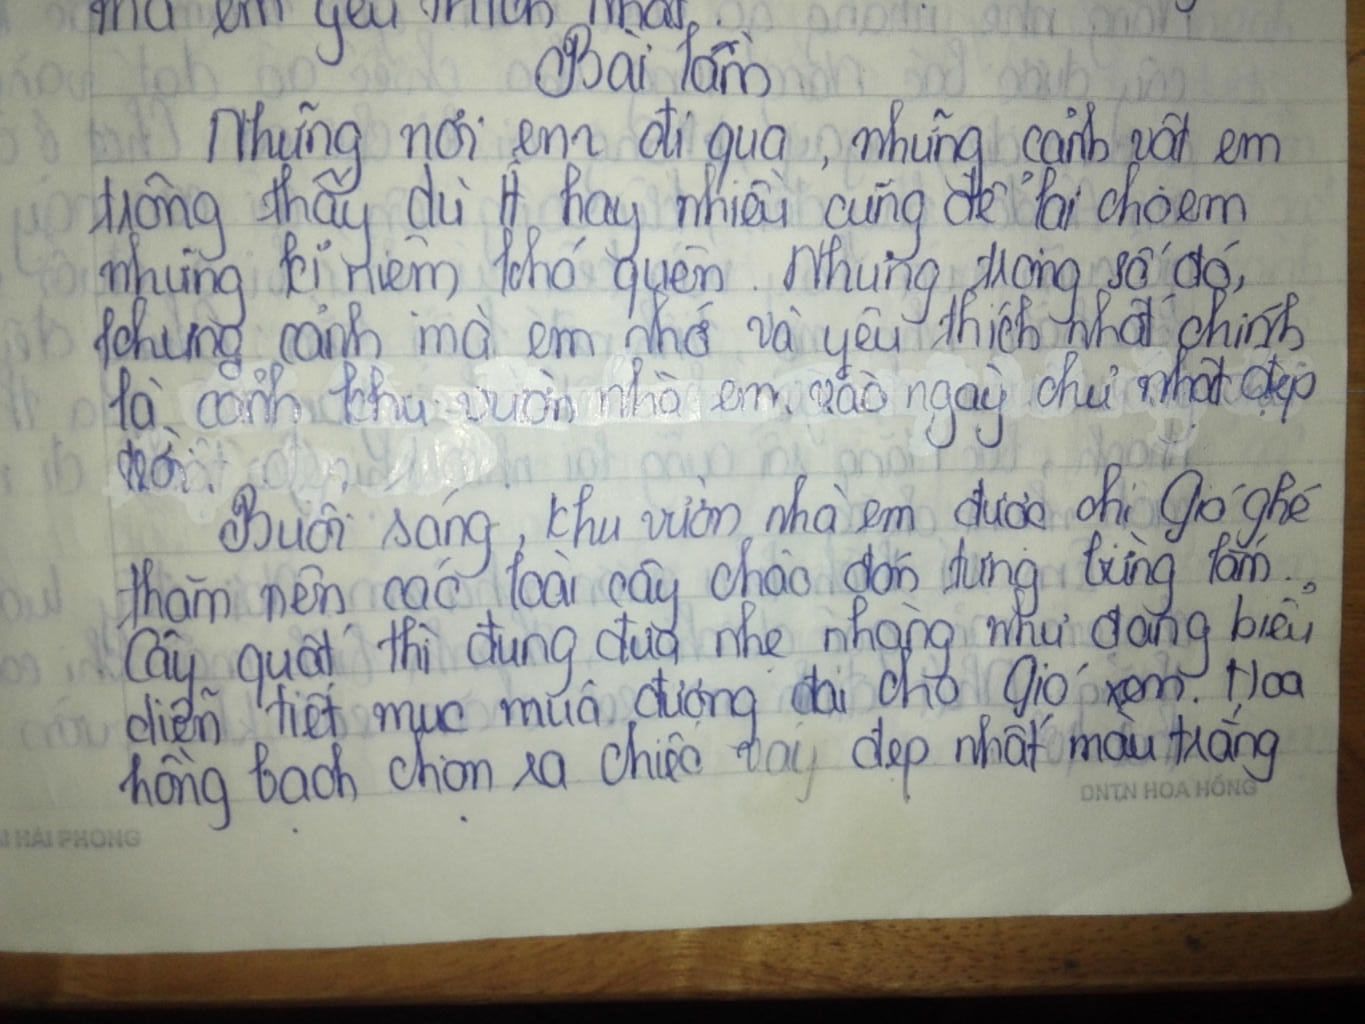 mà em yêu thích nhất.
Bài làm
Những nơi em đi qua, những cảnh vật em
trông thấy dù ít hay nhiều cũng để lại cho em
những kỉ niệm khó quên. Nhưng trong số đó,
khung cảnh mà em nhớ và yêu thích nhất chính
là cảnh khu vườn nhà em vào ngày chủ nhật đẹp
trời.
Buổi sáng, khu vườn nhà em được chị Gió ghé
thăm nên các loài cây chào đón tưng bừng lắm.
Cây quất thì đung đưa nhẹ nhàng như đang biểu
diễn tiết mục múa đương đại cho Gió xem. Hoa
hồng bạch chọn ra chiếc váy đẹp nhất màu trắng
DNTN HOA HỒNG
HẢI PHONG